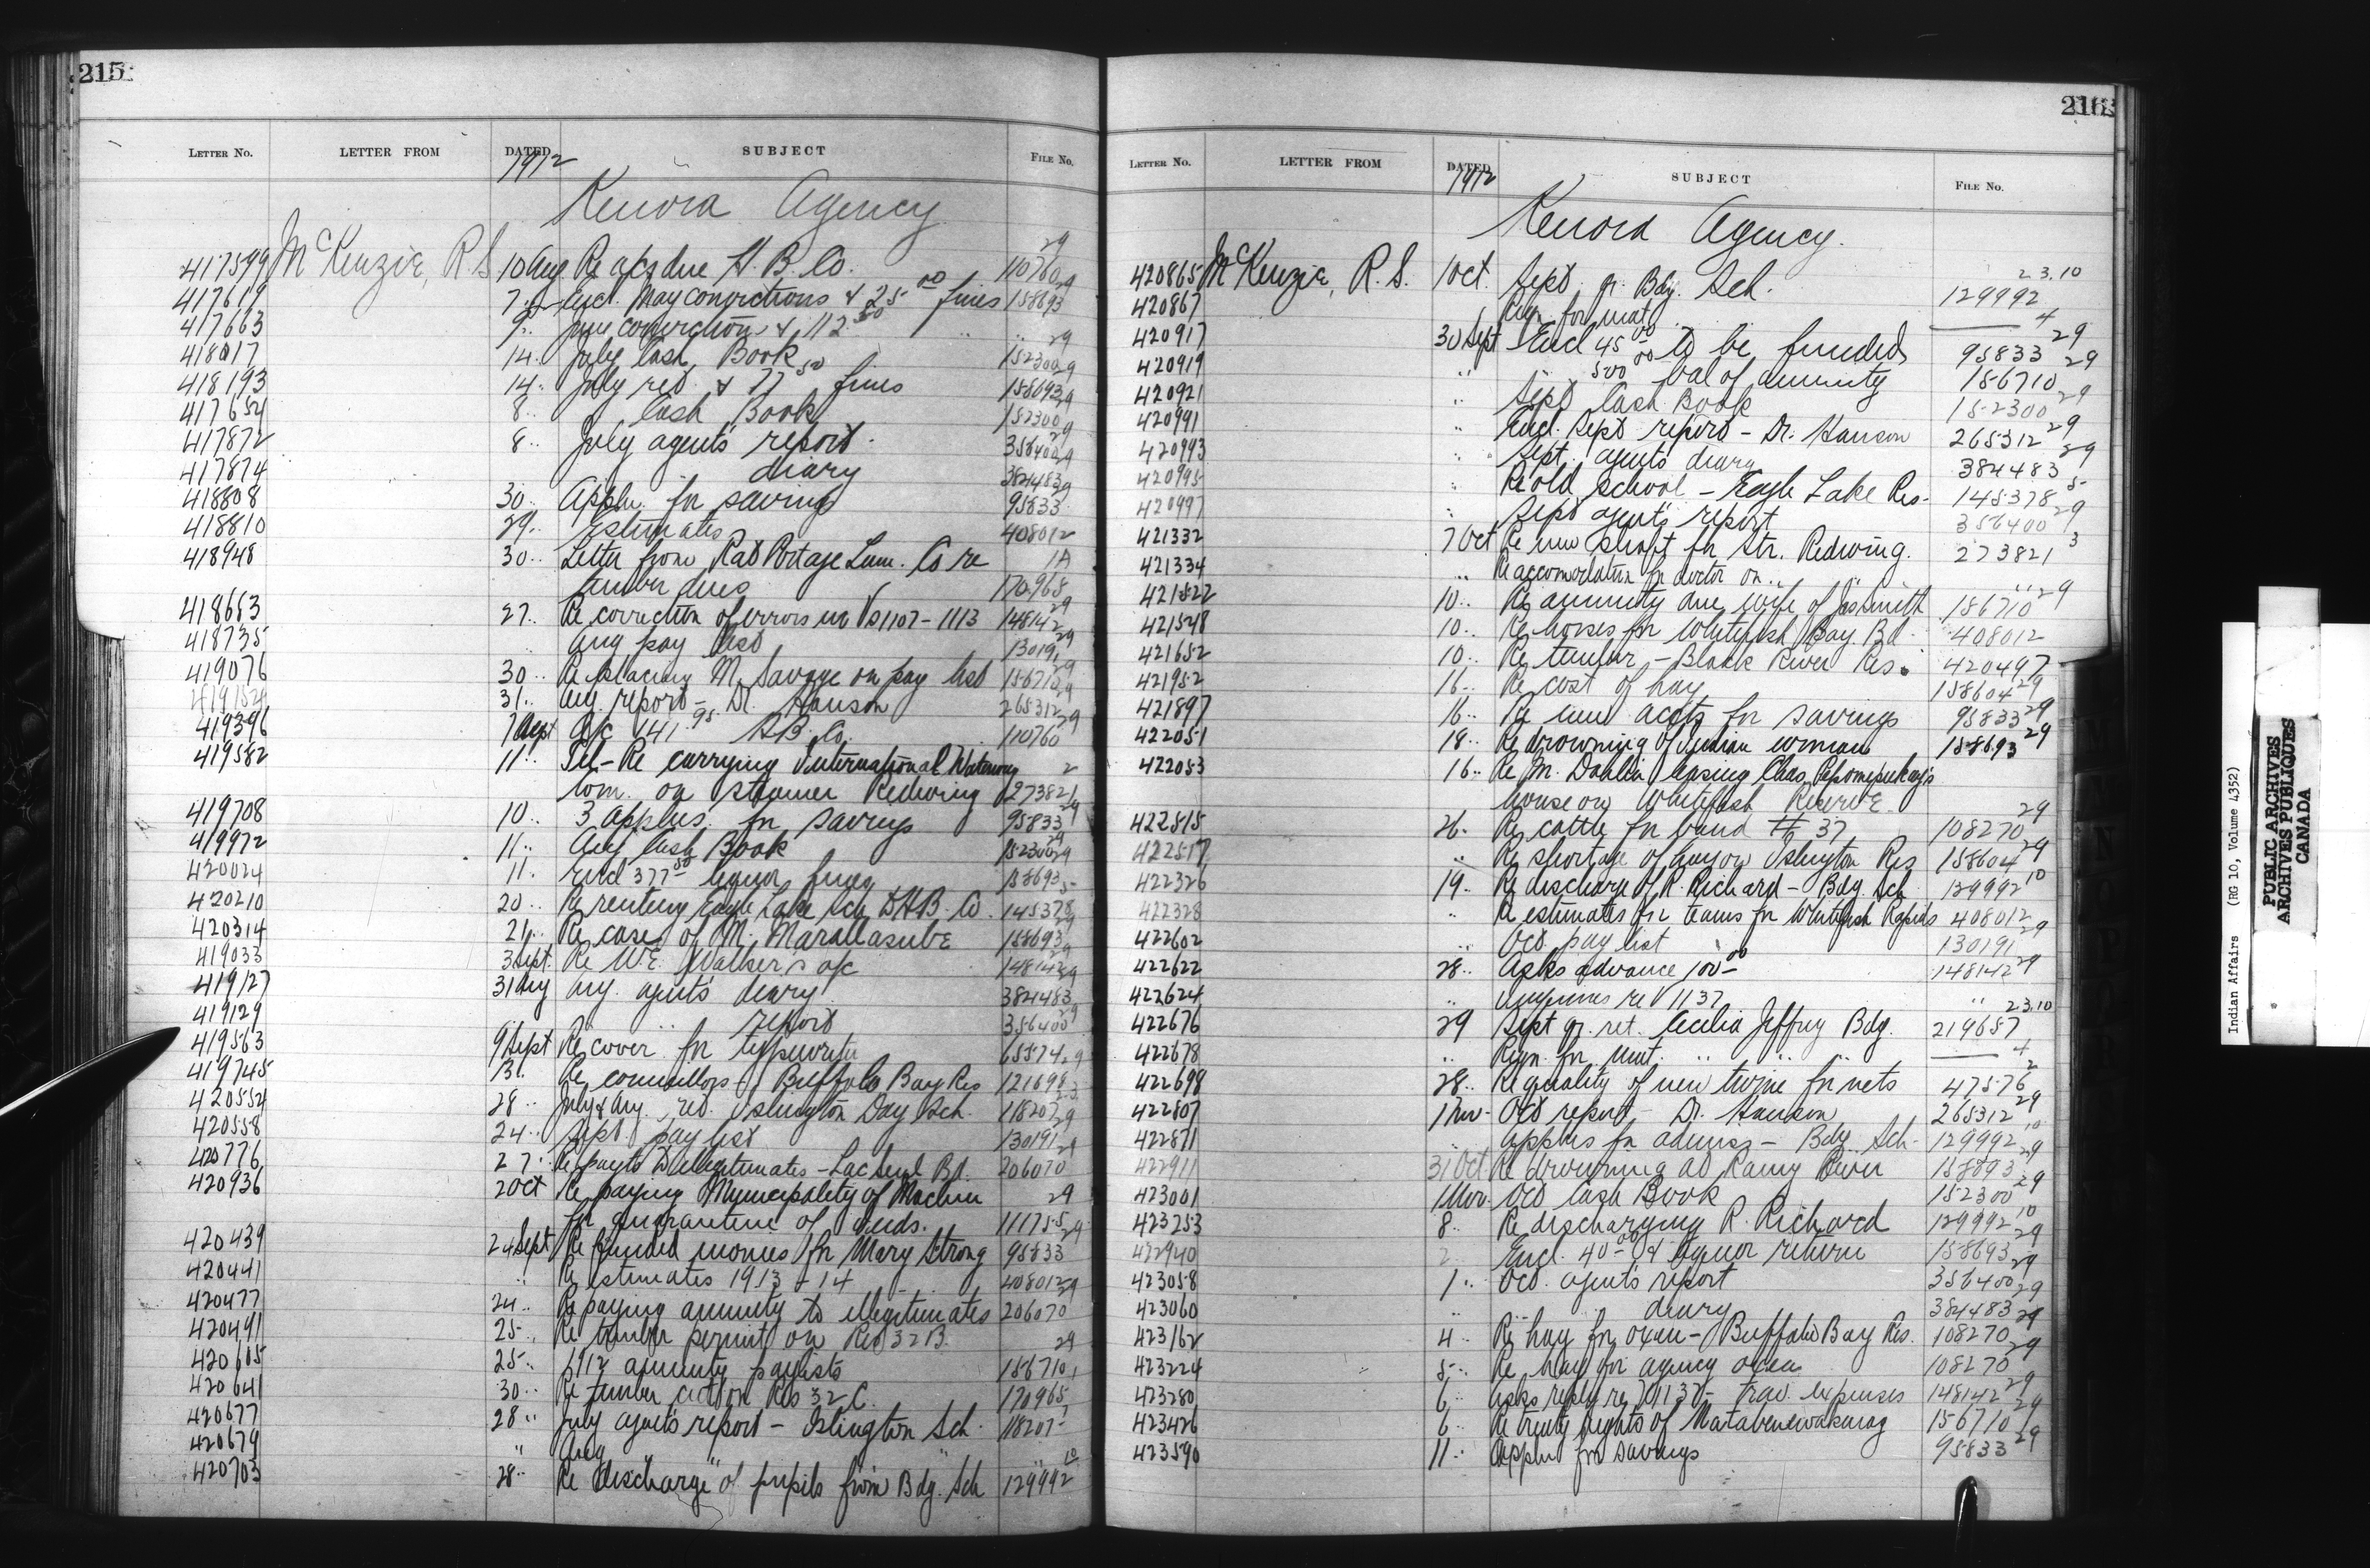 215
LETTER NO. LETTER FROM DATED SUBJECT FILE No.
1912
Kenora Agency
29
417599 McKenzie, R.S. 10 Aug Re a/cs due H. B. Co. 110760 29
417619 7 " Encl. May convictions & 25 00 fines 158693
417663 9 " June convictions & 112 50 " " 29
418017 14 " July Cash Book 152300 29
418193 14 " July ret. & 77 50 fines 158693 29
417654 8 " Cash Book 152300 29
417872 8 " July agent's report 356400 29
417874 " diary 384483 29
418808 30 " Appln. for savings 95833
418810 29 " Estimates 408012
418948 30 " Letter from Rat Portage Lum. Co re 1A
timber dues 170965
418653 27 " Re correction of errors in Vs 1107-1113 148142 29
418735 " Aug pay list 130191 29
419076 30 " Re placing M. Savage on pay list 156710 29
419154 31 " Aug. report - Dr. Hanson 265312 29
419396 7 Sept a/c 141 95 H.B. Co. 110760
419582 11 " Tel - Re carrying International Waterway 2
Com. on steamer Redwing 273821
419708 10 " 3 Applns. for savings 95833 29
419972 11 " Aug Cash Book 152300 29
420024 11 " Encl 377 50 liquor fines 158693
420210 20 " Re renting Eagle Lake Sch. to H.B. Co. 145378 5
420314 21 " Re case of M. 158693 29
419033 3 Sept. Re W.E. Walker's a/c 148142 29
419127 31 Aug Aug. agent's diary 384483
419129 " " report 356400 29
419563 9 Sept Re cover for typewriter 65574
419745 13 " Re councillors Buffalo Bay Res 121698
420554 28 " July & Aug. ret. Islington Day Sch. 118207
420558 24 " Sept. pay list 130191 29
420776 27 " Re payts to illegitimates - Lac Seul Bd. 206070
420936 2 Oct Re paying Municipality of Machin 29
for quarantine of Inds. 111755
420439 24 Sept Re funded monies for Mary Strong 95833 29
420441 " Re estimates 1913-14 408012
420477 24 " Re paying annuity to illegitimates 206070
420491 25 " Re timber permit on Res 32B. 29
420605 25 " 1912 annuity paylists 156710
420641 30 " Re timber cut on Res 32C. 170965
420677 28 " July agent's report - Islington Sch. 118207
420679 " Aug " " "
420703 28 " Re discharge of pupils from Bdg. Sch 129992 10
216
LETTER NO. LETTER FROM DATED SUBJECT FILE No.
1912
Kenora Agency.
420865 McKenzie, R. S. 1 Oct. Sept. qr. Bdg. Sch. 129992 23.10
420867 Reqn. for mat. 4
420917 30 Sept Encl 45 00 to be funded 95833 29
420919 " 500 00 bal of annuity 156710 29
420921 " Sept Cash Book 152300 29
420991 " Encl. Sept report - Dr. Hanson 265312 29
420993 " Sept. agent's diary 384483 29
420995 " Re old school - Eagle Lake Res. 145378 5
420997 " Sept agent's report 356400 29
421332 7 Oct Re new shaft for Str. Redwing. 273821 3
421334 " Re accomodation for doctor on " "
421522 10 " Re annuity due wife of Jas Smith 156710 29
421548 10 " Re horses for Whitefish Bay Bd. 408012
421652 10 " Re timber - Black River Res. 420497
421952 16 " Re cost of hay 158604 29
421897 16 " Re new accts for savings 95833 29
422051 18 " Re drowning of Indian woman 158693 29
422053 16 " Re M. Dahlin leasing Chas.
house on Whitefish Reserve
422515 26 " Re cattle for band # 37 108270 29
422517 " Re shortage of hay on Islington Res 158604 29
422326 19 " Re discharge of R. Richard - Bdg. Sch 129992 10
422328 " Re estimates for teams for Whitefish Rapids 408012
422602 " Oct. pay list 130191 29
422622 28 " Asks advance 100 00 148142 29
422624 " Inquiries re V 1137 " "
422676 29 Sept qr. ret. Cecilia Jeffrey Bdg. 219657 23.10
422678 " Reqn. for mat. " " " 4
422698 28 " Re quality of new twine for nets 47576 2
422807 1 Nov. Oct report - Dr. Hanson 265312 29
422871 " Applns for admiss - Bdg. Sch. 129992 10
422911 31 Oct Re drowning at Rainy River 158693 29
423001 1 Nov. Oct Cash Book 152300 29
423253 8 " Re discharging R. Richard 129992 10
422940 2 " Encl. 40 00 & liquor return 158693 29
423058 1 " Oct. agent's report 356400 29
423060 " " diary 384483 29
423162 4 " Re hay for oxen - Buffalo Bay Res. 108270 29
423224 5 " Re hay for agency oxen 108270 29
423280 6 " Asks reply re V 1137 - Trav. expenses 148142 29
423426 6 " Re treaty rights of 156710 29
423590 11 " Applns for savings 95833 29
Indian Affairs (RG 10, Volume 4352)
PUBLIC ARCHIVES
ARCHIVES PUBLIQUES
CANADA